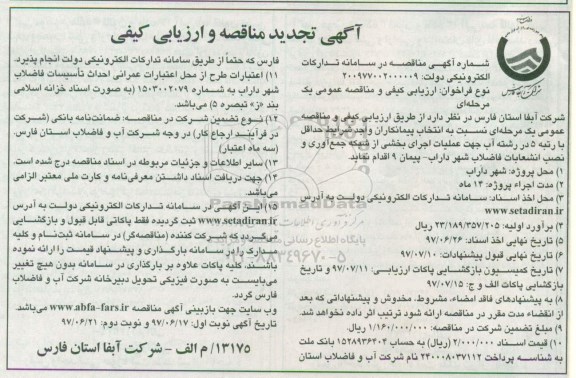 آگهی تجدید مناقصه و ارزیابی کیفی
شماره آگهی مناقصه در سامانه تدارکات
الکترونیکی دولت: ۲۰۰۹۷۷۰۰۲۰۰۰۰۰۹
نوع فراخوان: ارزیابی کیفی و مناقصه عمومی یک
مرحله‌ای
شرکت آبفا استان فارس در نظر دارد از طریق ارزیابی کیفی و مناقصه
عمومی یک مرحله‌ای نسبت به انتخاب پیمانکاران واجد شرایط حداقل
با رتبه ۵ در رشته آب جهت عملیات اجرای بخشی از شبکه جمع‌آوری و
نصب انشعابات فاضلاب شهر داراب- پیمان ۹ اقدام نماید.
۱) محل پروژه: شهر داراب
۲) مدت اجراء پروژه: ۱۲ ماه
۳) محل اخذ اسناد: سامانه تدارکات الکترونیکی دولت به آدرس
www.setadiran.ir
۴) برآورد اولیه: ۲۳/۱۸۹/۳۵۷/۲۰۵ ریال
۵) تاریخ نهایی اخذ اسناد: ۹۷/۰۶/۲۶
۶) تاریخ نهایی قبول پیشنهادات: ۹۷/۰۷/۱۰
۷) تاریخ کمیسیون بازگشایی پاکات ارزیابی: ۹۷/۰۷/۱۱ و تاریخ
بازگشایی پاکات الف و ج: ۹۷/۰۷/۱۵
۸) به پیشنهادهای فاقد امضاء، مشروط، مخدوش و پیشنهاداتی که بعد
از انقضاء مدت مقرر در مناقصه ارائه شود ترتیب اثر داده نخواهد شد.
۹) مبلغ تضمین شرکت در مناقصه: ۱/۱۶۰/۰۰۰/۰۰۰ ریال
۱۰) قیمت اسناد ۲/۰۰۰/۰۰۰ (ریال) به حساب ۱۵۲۸۹۳۶۴۰۴ بانک ملت
به شناسه پرداخت ۲۴۰۰۰۸۰۳۷۱۱۲ نام شرکت آب و فاضلاب استان
فارس که حتماً از طریق سامانه تدارکات الکترونیکی دولت انجام پذیرد.
۱۱) اعتبارات طرح از محل اعتبارات عمرانی احداث تأسیسات فاضلاب
شهر داراب به شماره ۱۵۰۳۰۰۲۰۷۹ (به صورت اسناد خزانه اسلامی
بند «ز» تبصره ۵) می‌باشد.
۱۲) نوع تضمین شرکت در مناقصه: ضمانت‌نامه بانکی (شرکت
در فرآیند ارجاع کار) در وجه شرکت آب و فاضلاب استان فارس.
(سه ماه اعتبار)
۱۳) سایر اطلاعات و جزئیات مربوطه در اسناد مناقصه درج شده است.
۱۴) جهت دریافت اسناد داشتن معرفی‌نامه و کارت ملی معتبر الزامی
می‌باشد.
۱۵) این آگهی در سامانه تدارکات الکترونیکی دولت به آدرس
www.setadiran.ir ثبت گردیده فقط پاکاتی قابل قبول و بازگشایی
می‌گردد که شرکت کننده (مناقصه‌گر) در سامانه ثبت‌نام و کلیه
مدارک را در سامانه بارگذاری و پیشنهاد قیمت را ارائه نموده
باشند. کلیه پاکات علاوه بر بارگذاری در سامانه بدون هیچ تغییر
می‌بایست به صورت فیزیکی تحویل دبیرخانه شرکت آب و فاضلاب
فارس گردد.
وب سایت جهت بازبینی آگهی مناقصه www.abfa-fars.ir می‌باشد.
تاریخ آگهی نوبت اول: ۹۷/۰۶/۱۷ و نوبت دوم: ۹۷/۰۶/۲۱
۱۳۱۷۵/ م الف - شرکت آبفا استان فارس
ParsNamadData
پایگاه اطلاع رسانی مناقصه و مزایده
۰۲۱-۸۸۳۴۹۶۷۰-۵